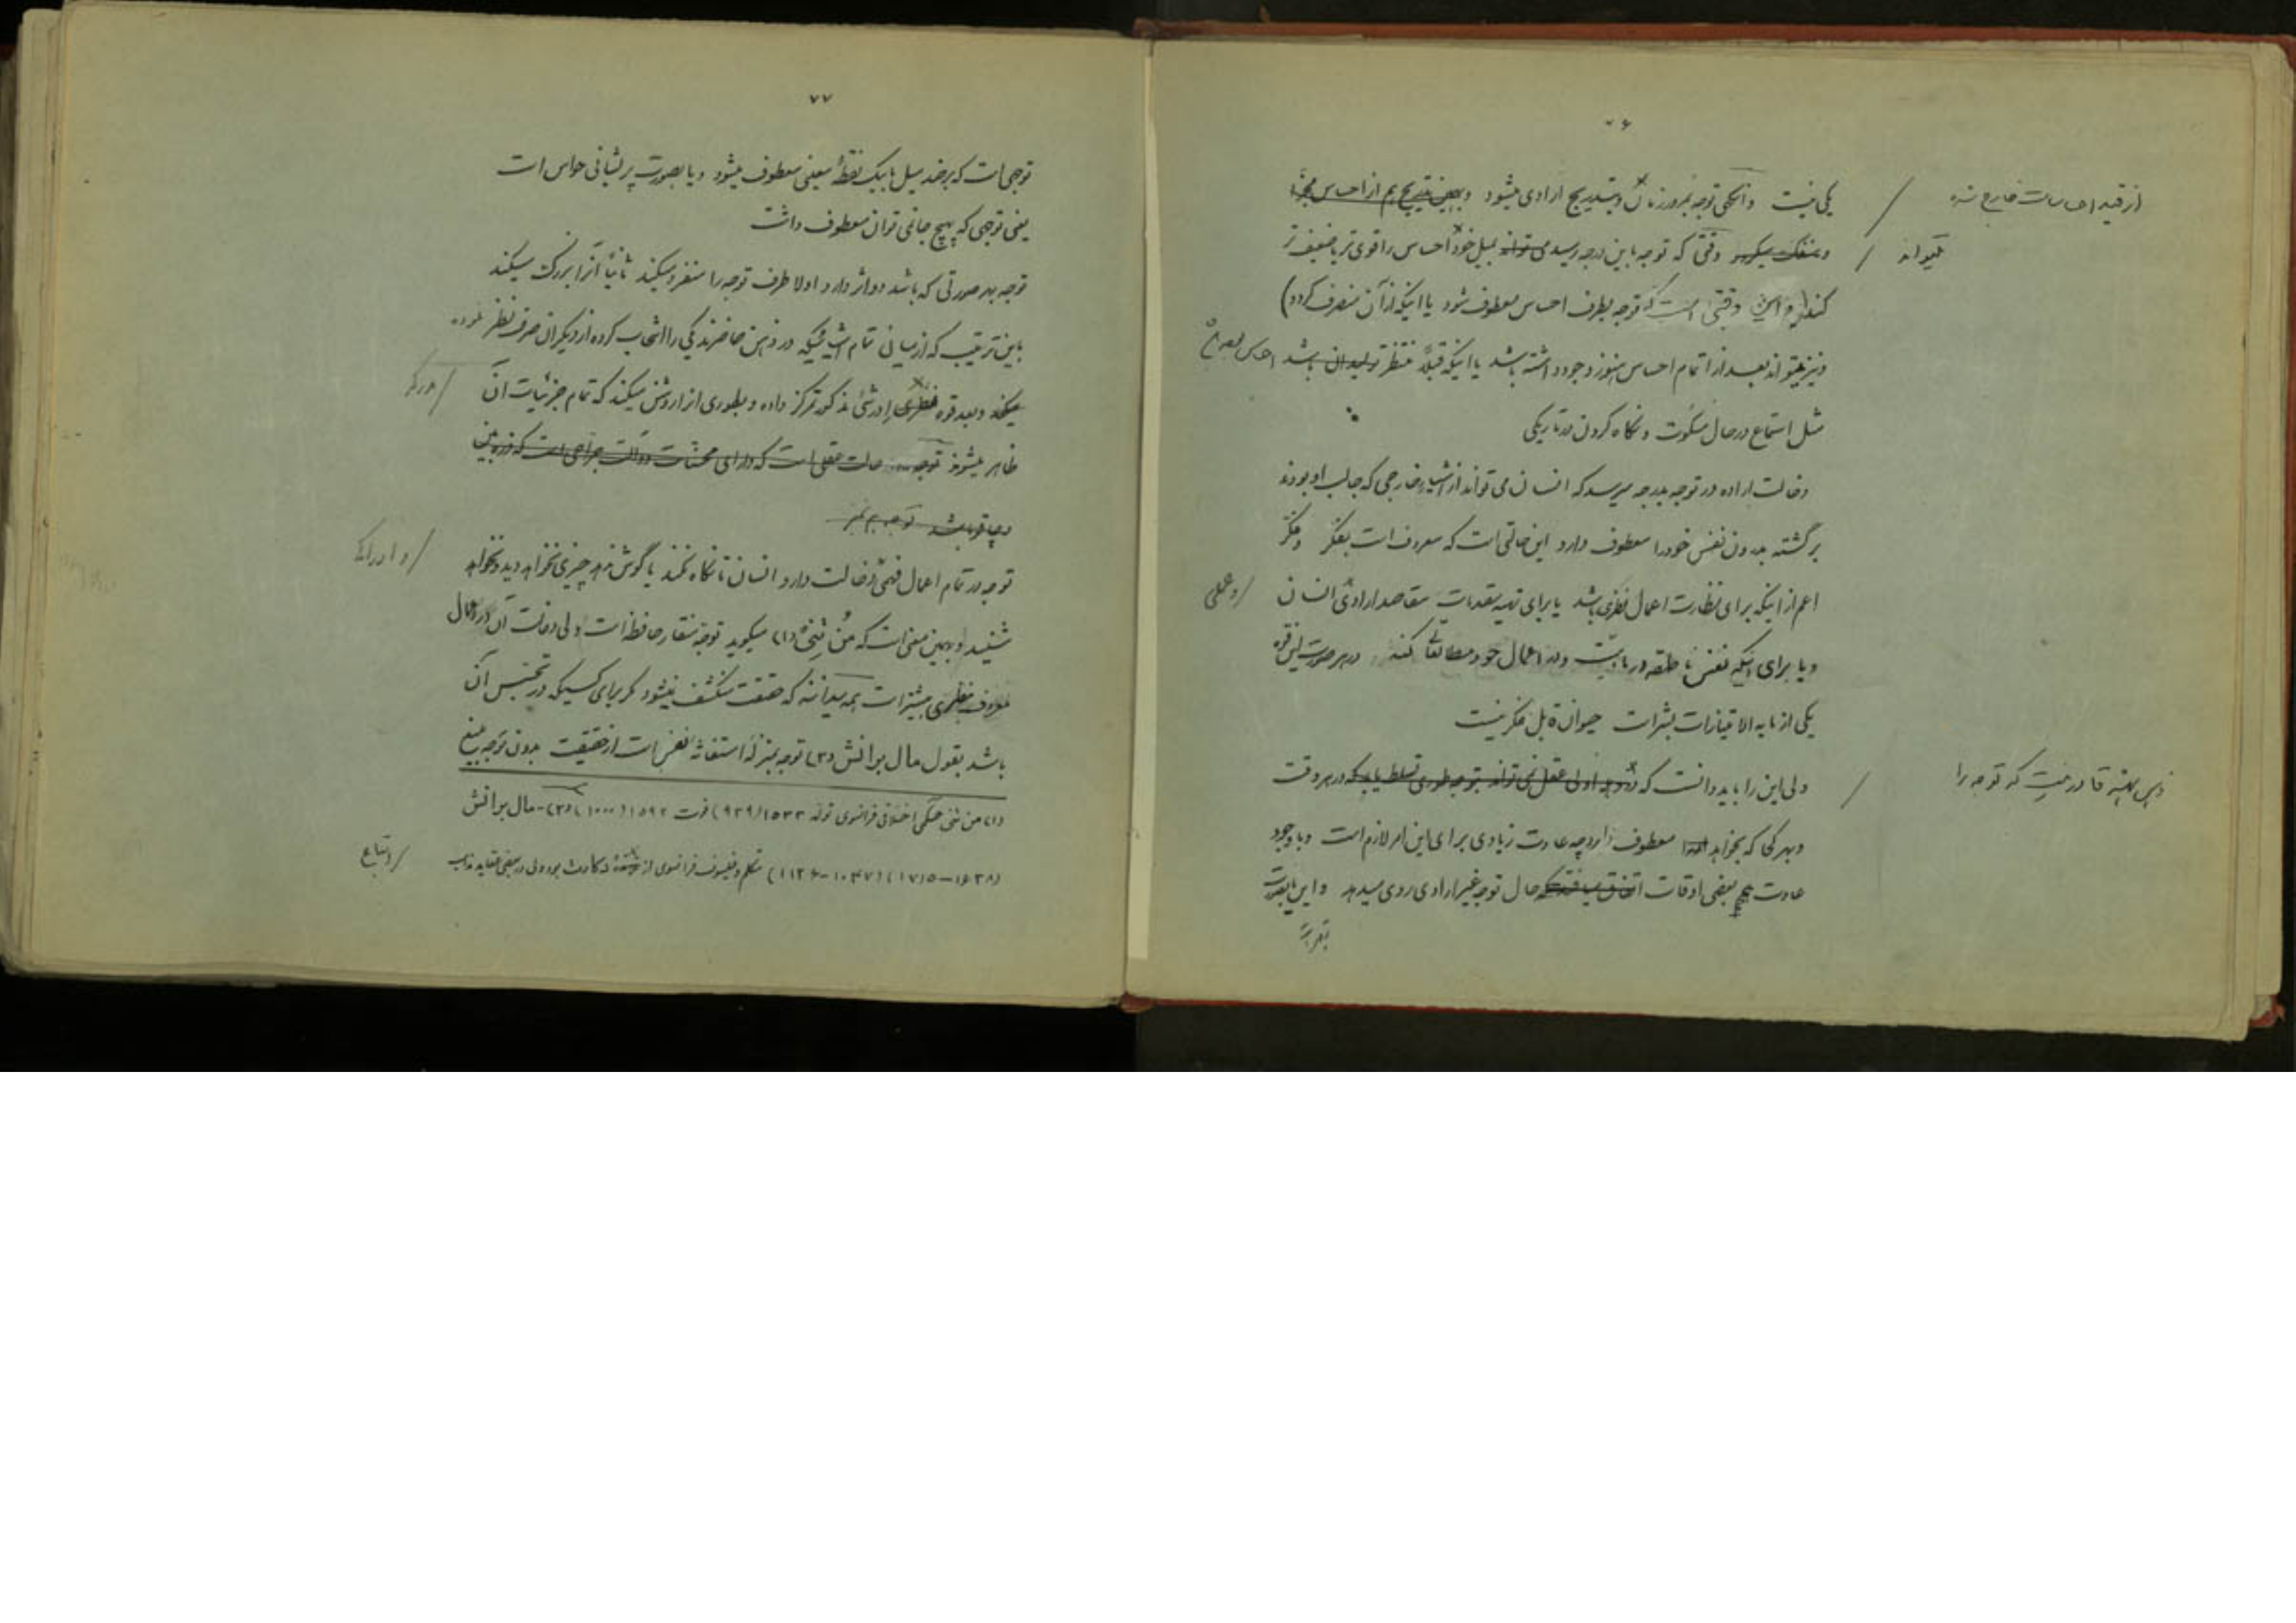 ۷۶
یکی نیست وانگهی توجه بمرور زمان وبتدریج ارادی میشود وبهمین تدریج هم از احساس مجزا
از قید احساسات خارج شده
ومنفک میگردد وقتی که توجه باین درجه رسید می تواند بمیل خود احساس را قوی تر یا ضعیف تر
میتواند
کند وقتی است که توجه بطرف احساس معطوف شود یا اینکه از آن منصرف گردد)
ونیز میتواند بعد از اتمام احساس هنوز وجود داشته باشد یا اینکه قبلاً منتظر تولید آن باشد احساس
مثل استماع در حال سکوت و نگاه کردن در تاریکی
دخالت اراده در توجه بدرجه میرسد که انسان می تواند از اشیاء خارجی که جالب او بودند
برگشته بدرون نفس خود را معطوف دارد این حالتی است که معروف است بفکر وفکر
اعم از اینکه برای نظارت اعمال فکری باشد یا برای تهیه مقدمات مقاصد ارادی انسان
وعملی
ویا برای اینکه نفس ناطقه در اعمال خود مطالعه کند در هر صورت این قوه
یکی از مابه الامتیازات بشر است حیوان قابل فکر نیست
ولی این را باید دانست که در وهله اولی عقل نمی تواند بتوجه طوری تسلط یابد که در هر وقت
ذهن همیشه قادر نیست که توجه را
وبهر کجا که بخواهد معطوف دارد چه عادت زیادی برای این امر لازم است وبا وجود
عادت هم بعضی اوقات اتفاق میافتد که حال توجه غیر ارادی روی میدهد واین یا بصورت
۷۷
توجهی است که برضد میل ما بیک نقطه معینی معطوف میشود ویا بصورت پریشانی حواس است
یعنی توجهی که بهیچ جا نمی توان معطوف داشت
توجه بهر صورتی که باشد دو اثر دارد اولا طرف توجه را منفرد میکند ثانیاً آنرا بزرگ میکند
باین ترتیب که از میانی تمام اشیائیکه در ذهن حاضرند یکی را انتخاب کرده از دیگران صرف نظر نموده
میکند وبعد قوه فکری را در شئ مذکور تمرکز داده وبطوری انرا روشن میکند که تمام جزئیات آن
ظاهر میشوند توجه حالت عقلی است که دارای محسنات دو آلت جراحی است که ذره بین
وچاقو باشد توجه هم نیز
توجه در تمام اعمال فهمی دخالت دارد انسان تا نگاه نکند یا گوش ندهد چیزی نخواهد دید ونخواهد
شنید وبهمین معنی است که مُن تِنی (۱) میگوید توجه منقار حافظه است ولی دخالت آن در اعمال
فکری بیشتر است همه میدانند که حقیقت منکشف نمیشود مگر برای کسیکه در تجسس آن
باشد بقول مال برانش (۲) توجه بمنزله استغاثه نفس است از حقیقت بدون توجه بلیغ
(۱) من تنی حکمی اخلاقی فرانسوی تولد ۱۵۳۳ (۹۳۹) فوت ۱۵۹۲ (۱۰۰۰) (۲) - مال برانش
(۱۶۳۸-۱۷۱۵) (۱۰۴۷-۱۱۲۶) متکلم وفیلسوف فرانسوی از دکارت بود ولی در بعضی عقاید
اتباع